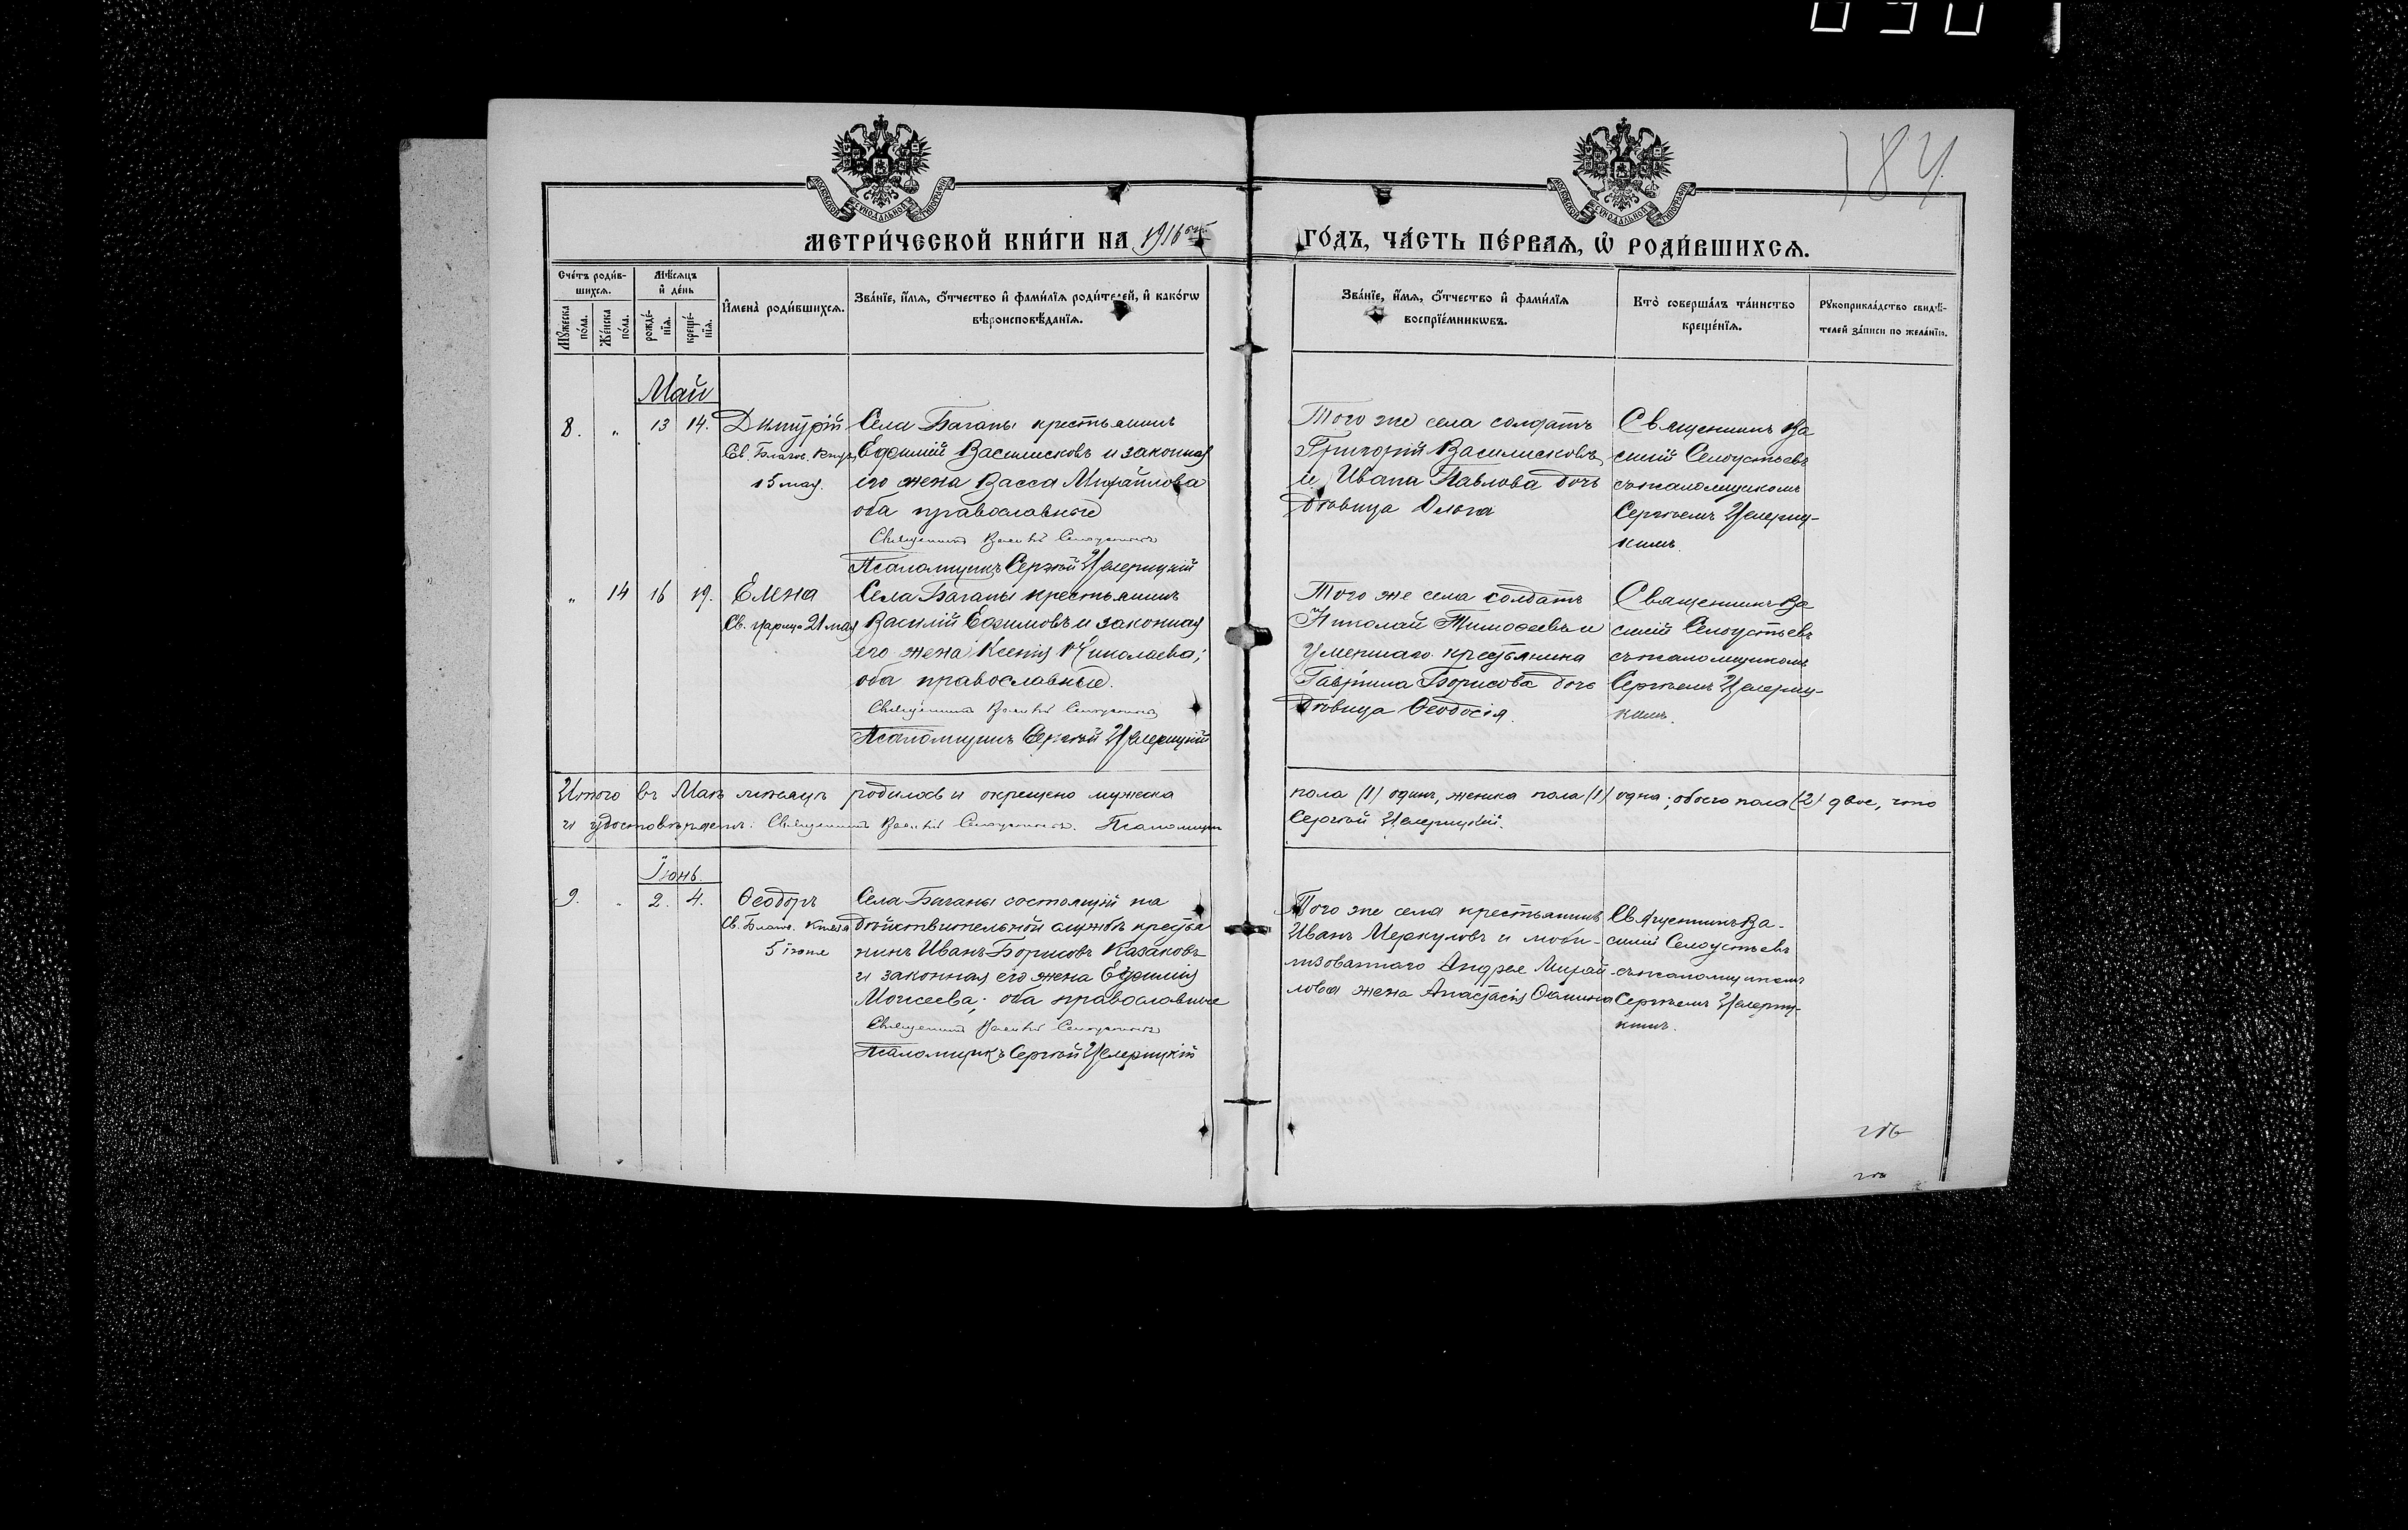 0901
184
МОСКОВСКОЙ СУНОДАЛЬНОЙ ТИПОГРАФІИ
МОСКОВСКОЙ СУНОДАЛЬНОЙ ТИПОГРАФІИ
МЕТРИ́ЧЕСКОЙ КНИ́ГИ НА 1916 ГО́ДЪ, ЧА́СТЬ ПЕ́РВАѦ, Ѡ҆ РОДИ́ВШИХСѦ.
Сче́тъ роди́в-
шихсѧ.
Мꙋ́жеска по́ла.
Же́нска по́ла.
Мѣ́сѧцъ
и҆ де́нь
рожде́-
нїѧ.
креще́-
нїѧ.
И҆мена̀ роди́вшихсѧ.
Зва́нїе, и҆́мѧ, ѻ҆́тчество и҆ фамі́лїѧ роди́телей, и҆ како́гѡ
вѣроисповѣ́данїѧ.
Зва́нїе, и҆́мѧ, ѻ҆́тчество и҆ фамі́лїѧ
воспрїе́мникѡвъ.
Кто̀ соверша́лъ та́инство
креще́нїѧ.
Рꙋкоприкла́дство свидѣ́-
телей за́писи по жела́нїю.
Май
8. „ 13 14. Дмитрій
Св. Благов. Князь
15 мая.
Села Баганы крестьянинъ
Ефимій Василисковъ и законная
его жена Васса Михайлова
оба православные
Священникъ Василій
Псаломщикъ Сергѣй
Того же села солдатъ
Григорій Василисковъ
и Ивана Павлова дочь
дѣвица Ольга
Священникъ Ва
силій Селоустьевъ
съ псаломщикомъ
Сергѣемъ
кимъ.
„ 14 16 19. Елена
Св. царица 21 мая
Села Баганы крестьянинъ
Василій Ефимовъ и законная
его жена Ксенія Николаева;
оба православные.
Священникъ Василій
Псаломщикъ Сергѣй
Того же села солдатъ
Николай Тимофеевъ и
умершаго крестьянина
Гавріила Борисова дочь
дѣвица Ѳеодосія.
Священникъ Ва
силій Селоустьевъ
съ псаломщикомъ
Сергѣемъ
кимъ.
Итого въ Маѣ мѣсяцѣ родилось и окрещено мужеска пола (1) одинъ, женска пола (1) одна; обоего пола (2) двое, что
и удостовѣряемъ. Священникъ Василій Псаломщикъ Сергѣй
Іюнь.
9. „ 2. 4. Ѳеодоръ
Св. Благов. Князя
5 іюня
Села Баганы состоящій на
дѣйствительной службѣ крестья
нинъ Иванъ Борисовъ Казаковъ
и законная его жена Ефимія
Моисеева; оба православные
Священникъ Василій
Псаломщикъ Сергѣй
Того же села крестьянинъ
Иванъ Меркуловъ и моби-
лизованнаго Андрея Михай-
лова жена Анастасія Ѳомина
Священникъ Ва-
силій Селоустьевъ
съ псаломщикомъ
Сергѣемъ
кимъ.